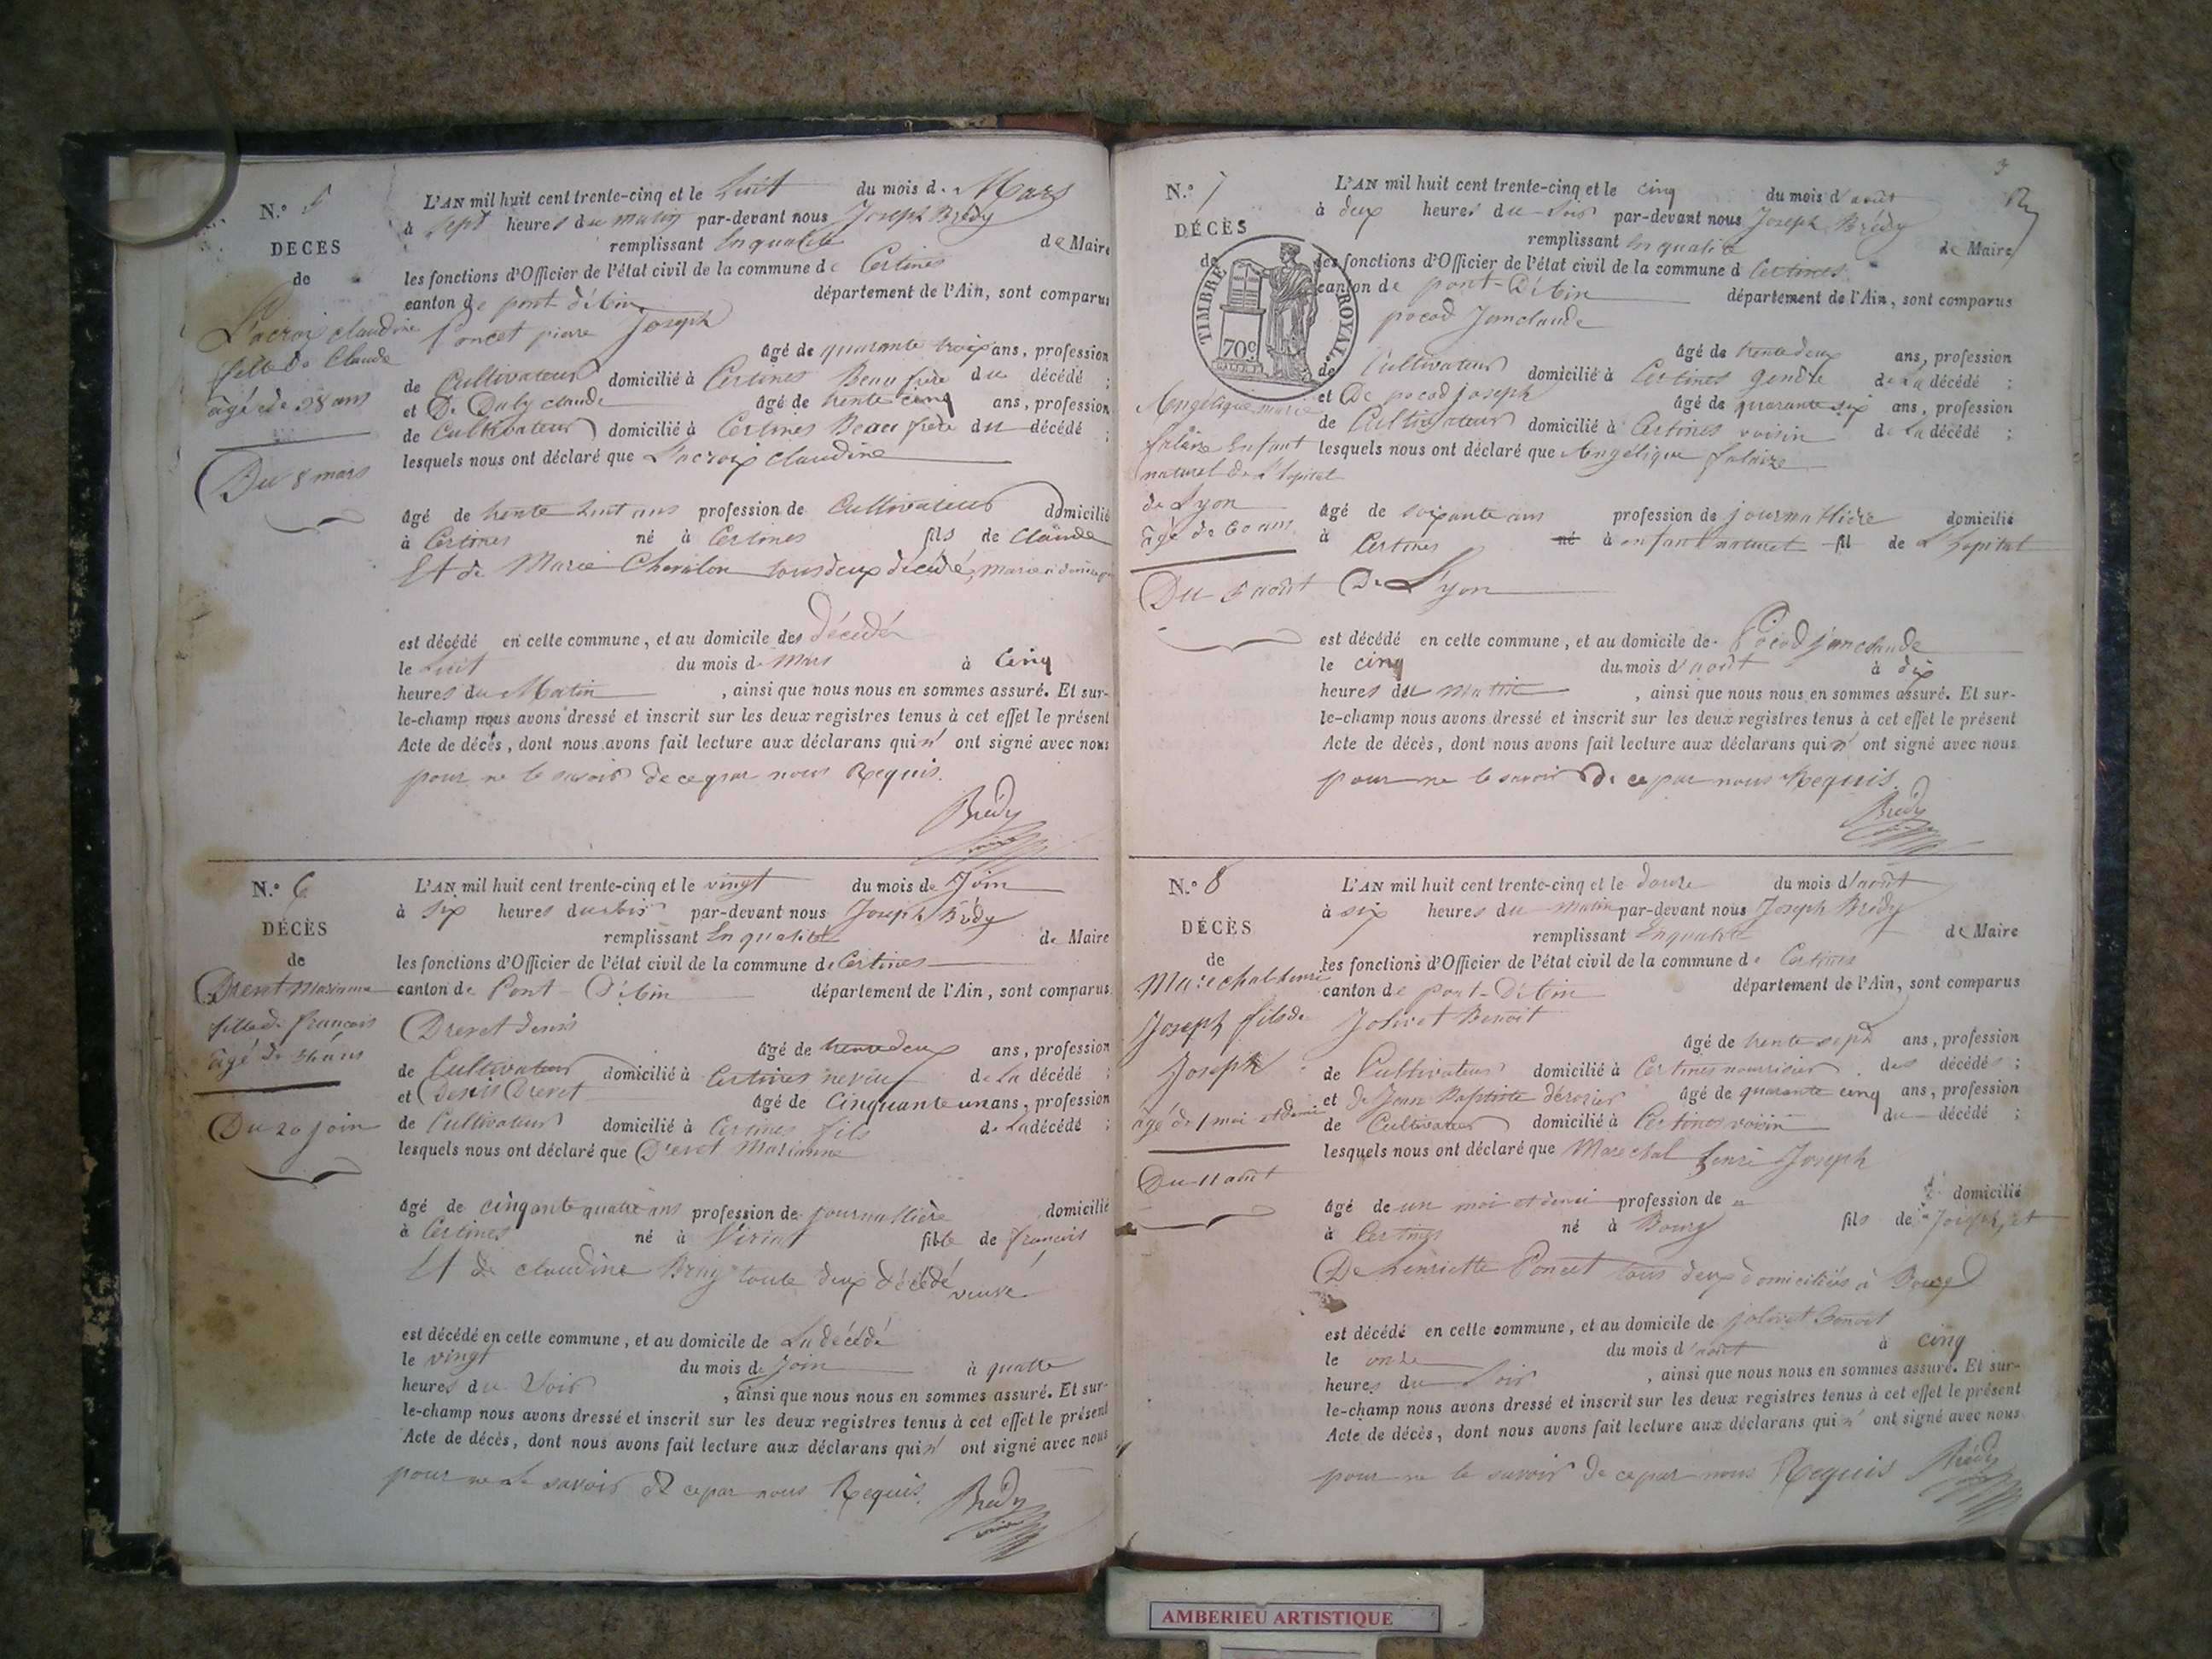 N.º 5
DECES
de
Lacroix claudine
fille de Claude
âgé de 38 ans
Du 8 mars
L'AN mil huit cent trente-cinq et le huit du mois de Mars
à sept heures du matin par-devant nous Joseph Brédy
remplissant En qualité de Maire
les fonctions d'Officier de l'état civil de la commune de Certines
canton de pont d'Ain département de l'Ain, sont comparus
Poncet pierre Joseph
âgé de quarante trois ans, profession
de Cultivateur domicilié à Certines Beau frère du décédé ;
et De Daly claude âgé de trente cinq ans, profession
de Cultivateur domicilié à Certines Beau frère du décédé ;
lesquels nous ont déclaré que Lacroix claudine
âgé de trente huit ans profession de Cultivateur domicilié
à Certines né à Certines fils de Claude
Et de Marie Chevilon tous deux décédé, mariée
est décédé en cette commune, et au domicile des Décédé
le huit du mois de Mars à Cinq
heures du Matin , ainsi que nous nous en sommes assuré. Et sur-
le-champ nous avons dressé et inscrit sur les deux registres tenus à cet effet le présent
Acte de décès, dont nous avons fait lecture aux déclarans qui n' ont signé avec nous
pour ne le savoir de ce par nous Requis.
Brédy
N.º 6
DÉCÈS
de
Drevet Marianne
fille de françois
âgé de 54 ans
Du 20 join
L'AN mil huit cent trente-cinq et le vingt du mois de Join
à six heures du soir par-devant nous Joseph Brédy
remplissant En qualité de Maire
les fonctions d'Officier de l'état civil de la commune de Certines
canton de Pont - D'Ain département de l'Ain, sont comparus
Drevet denis
âgé de trente deux ans, profession
de Cultivateur domicilié à Certines neveu de La décédé ;
et Denis Drevet âgé de Cinquante un ans, profession
de Cultivateur domicilié à Certines fils de La décédé ;
lesquels nous ont déclaré que Drevet Marianne
âgé de cinqante quatre ans profession de journallière domicilié
à Certines né à Viriat fille de françois
Et de claudine Bruy toute deux décédé veuve
est décédé en cette commune, et au domicile de La décédé
le vingt du mois de Join à quatre
heures du Soir , ainsi que nous nous en sommes assuré. Et sur-
le-champ nous avons dressé et inscrit sur les deux registres tenus à cet effet le présent
Acte de décès, dont nous avons fait lecture aux déclarans qui n' ont signé avec nous
pour ne le savoir de ce par nous Requis.
Brédy
3
N.º 7
DÉCÈS
de
TIMBRE ROYAL
70c
Angelique marie
falaise Enfant
naturel de L'hopital
de Lyon
âgé de 60 ans
Du 5 août
L'AN mil huit cent trente-cinq et le cinq du mois d'août
à deux heures du soir par-devant nous Joseph Brédy
remplissant En qualité de Maire
les fonctions d'Officier de l'état civil de la commune d Certines
canton de pont - D'Ain département de l'Ain, sont comparus
pocod Janclaude
âgé de trente deux ans, profession
de Cultivateur domicilié à Certines gendre de La décédé ;
et De pocod joseph âgé de quarante six ans, profession
de Cultivateur domicilié à Certines voisin de La décédé ;
lesquels nous ont déclaré que Angelique falaize
âgé de soixante ans profession de journallière domicilié
à Certines né à enfant naturel fil de L'hopital
De Lyon
est décédé en cette commune, et au domicile de Pocod janclaude
le cinq du mois d'août à dix
heures du matin , ainsi que nous nous en sommes assuré. Et sur-
le-champ nous avons dressé et inscrit sur les deux registres tenus à cet effet le présent
Acte de décès, dont nous avons fait lecture aux déclarans qui n' ont signé avec nous
pour ne le savoir De ce par nous Requis.
Brédy
N.º 8
DÉCÈS
de
Marechal henri
Joseph fils de
Joseph
âgé de 1 moi et demi
Du 11 août
L'AN mil huit cent trente-cinq et le douze du mois d'août
à six heures du matin par-devant nous Joseph Brédy
remplissant En qualité de Maire
les fonctions d'Officier de l'état civil de la commune de Certines
canton de pont - D'Ain département de l'Ain, sont comparus
Jolivet Benoit
âgé de trente sept ans, profession
de Cultivateur domicilié à Certines nourricier des décédés ;
et De Jean Baptiste dérosier âgé de quarante cinq ans, profession
de Cultivateur domicilié à Certines voisin du décédé ;
lesquels nous ont déclaré que Marechal henri Joseph
âgé de un moi et demi profession de domicilié
à Certines né à Bourg fils de Joseph, et
De henriette Poncet tous deux domiciliés à Bourg
est décédé en cette commune, et au domicile de jolivet Benoit
le onze du mois d'août à cinq
heures du Soir , ainsi que nous nous en sommes assuré. Et sur-
le-champ nous avons dressé et inscrit sur les deux registres tenus à cet effet le présent
Acte de décès, dont nous avons fait lecture aux déclarans qui n' ont signé avec nous
pour ne le savoir De ce par nous Requis
Brédy
AMBERIEU ARTISTIQUE